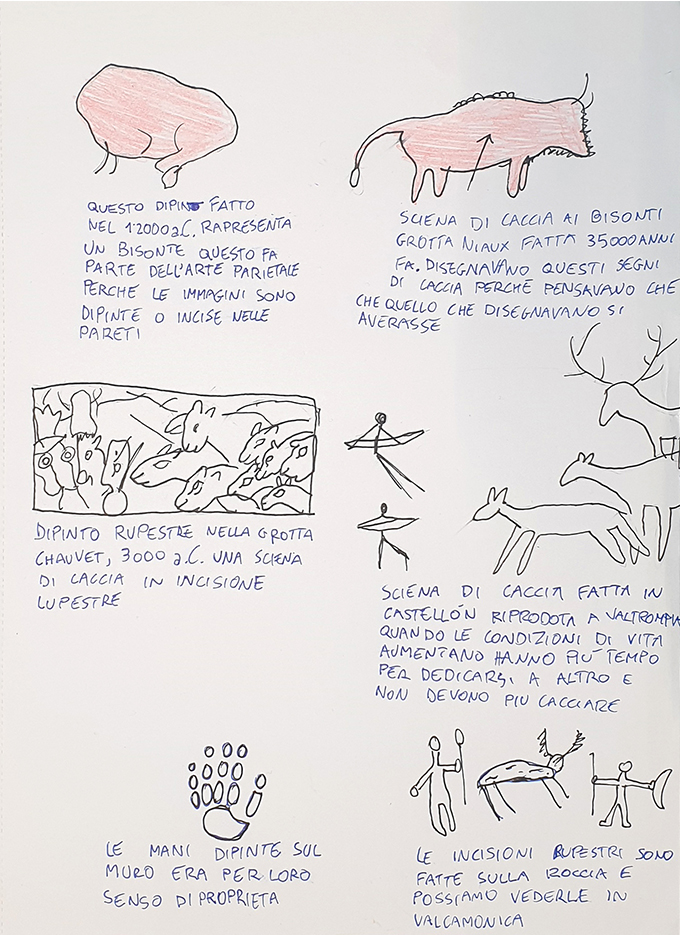 QUESTO DIPINTO FATTO
NEL 12000 a.C. RAPRESENTA
UN BISONTE QUESTO FA
PARTE DELL'ARTE PARIETALE
PERCHE LE IMMAGINI SONO
DIPINTE O INCISE NELLE
PARETI
SCIENA DI CACCIA AI BISONTI
GROTTA NIAUX FATTA 35000 ANNI
FA. DISEGNAVANO QUESTI SEGNI
DI CACCIA PERCHÈ PENSAVANO CHE
CHE QUELLO CHE DISEGNAVANO SI
AVERASSE
DIPINTO RUPESTRE NELLA GROTTA
CHAUVET, 3000 a.C. UNA SCIENA
DI CACCIA IN INCISIONE
LUPESTRE
SCIENA DI CACCIA FATTA IN
CASTELLÓN RIPRODOTA A VALTROMPIA
QUANDO LE CONDIZIONI DI VITA
AUMENTANO HANNO PIU TEMPO
PER DEDICARSI A ALTRO E
NON DEVONO PIU CACCIARE
LE MANI DIPINTE SUL
MURO ERA PER LORO
SENSO DI PROPRIETA
LE INCISIONI RUPESTRI SONO
FATTE SULLA ROCCIA E
POSSIAMO VEDERLE IN
VALCAMONICA